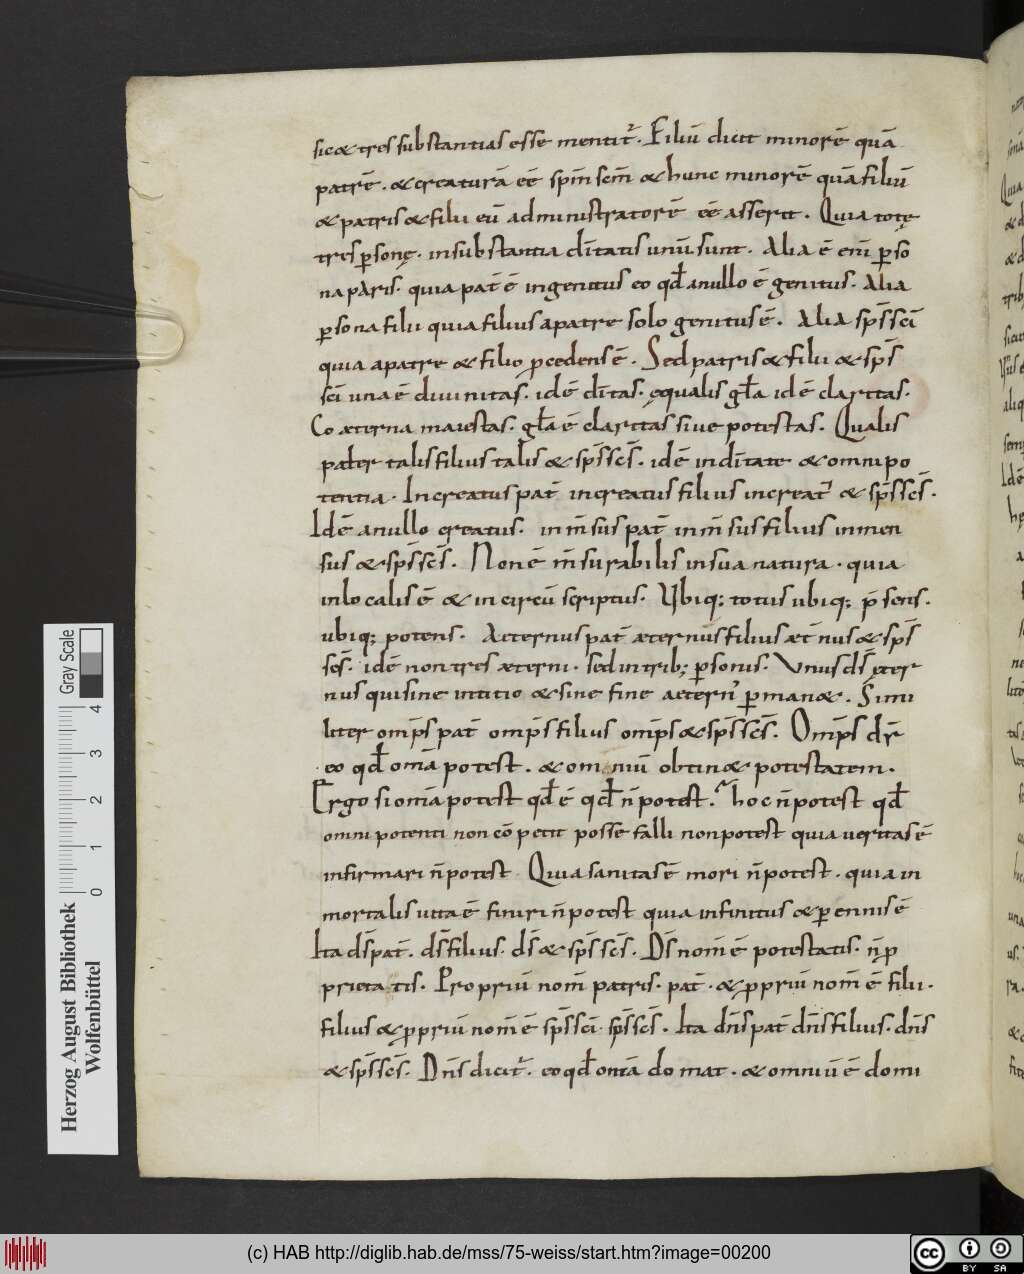 sic & tres substantias esse mentit᷑. Filiū dicit minorē quā
patrē. & creaturā eē sp̄m sc̄m & hunc minorē quā filiū
& patris & filii eū administratorē eē asserit. Quia totę
tres p̱sonę. in substantia diūtatis unū sunt. Alia ē eni̅ p̱so
na pAris. quia pat̄ ē ingenitus eo qđ a nullo ē genitus. Alia
p̱sona filii quia filius a patre solo genitus ē. Alia sp̄s sc̄i
quia a patre & filio ꝓcedens ē. Sed patris & filii & sp̄s
sc̄i una ē divinitas. idē di̅tas. ęqualis gl̄a idē claritas.
Co æterna maiestas. gl̄a ē claritas sive potestas. Qualis
pater talis filius talis & sp̄s sc̄s. idē in di̅tate & omnipo
tentia. Increatus pat̄ increatus filius increat᷑ & sp̄s sc̄s.
Idē a nullo creatus. inm̄sus pat̄ inm̄sus filius inmen
sus & sp̄s sc̄s. Non ē m̄surabilis in sua natura. quia
inlocalis ē & incircū scriptus. Ubiq; totus ubiq; p̄sens.
ubiq; potens. Aeternus pat̄ æternus filius æt̄nus & sp̄s
sc̄s. idē non tres æterni. sed in trib; p̱sonis. Unus d̄s æter
nus qui sine initio & sine fine aetern᷑ p̱man&. Simi
liter omp̄s pat̄ omp̄s filius omp̄s & sp̄s sc̄s. Omp̄s dr̄
eo qđ om̄a potest. & omnium obtin& potestatem.
Ergo si om̄ia potest qđ ē qđ n̄ potest. hoc n̄ potest qđ
omnipotenti non cōpetit posse falli non potest quia veritas ē
infirmari n̄ potest. Quia sanitas ē mori n̄ potest. quia in
mortalis vita ē finiri n̄ potest quia infinitus & p̱ennis ē
Ita d̄s pat̄. d̄s filius. d̄s & sp̄s sc̄s. D̄s nom̄ ē potestatis. n̄ ꝓ
prietatis. Propriū nom̄ patris. pat̄. & ꝓpriū nom̄ ē filii.
filius & ꝓpriū nom̄ ē sp̄s sc̄i. sp̄s sc̄s. Ita dn̄s pat̄ dn̄s filius. dn̄s
& sp̄s sc̄s. Dn̄s dicit᷑. eo qđ om̄ia domat. & omniū ē domi
Gray Scale
4 3 2 1 0
Herzog August Bibliothek
Wolfenbüttel
(c) HAB http://diglib.hab.de/mss/75-weiss/start.htm?image=00200
cc BY SA